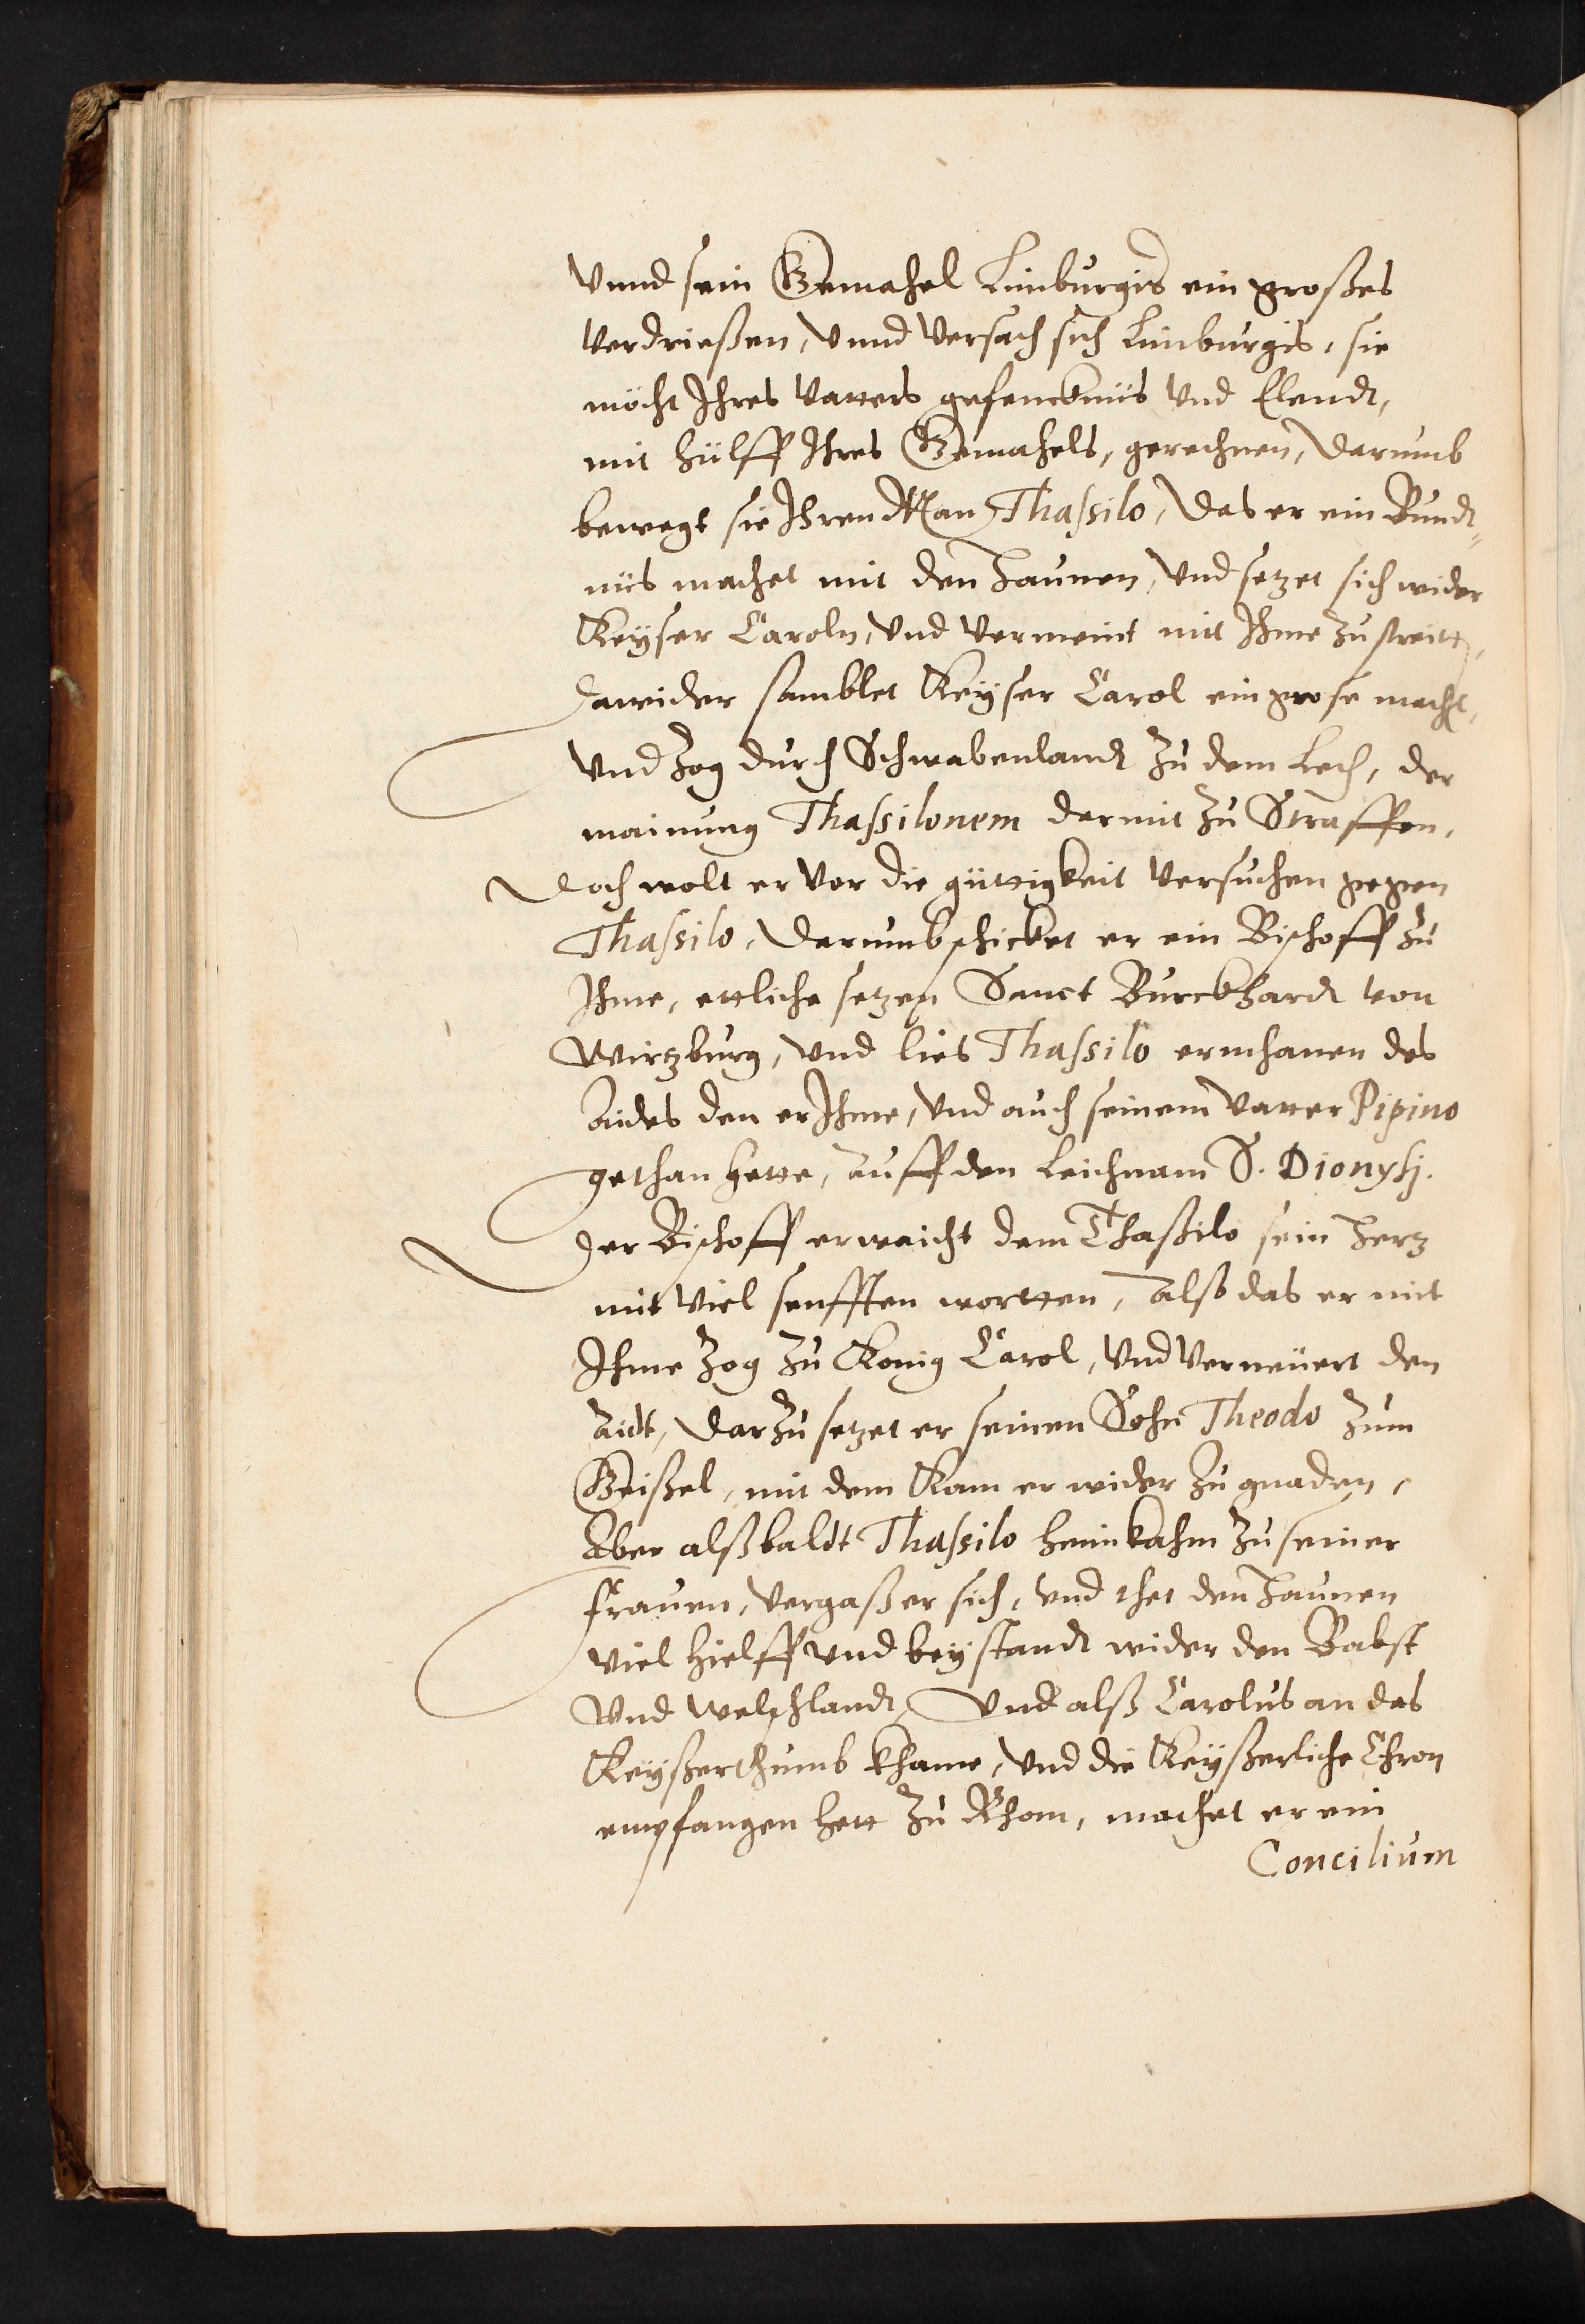 Vnnd sein Gemahel Linburgis ein großes
Verdrießen, Vnnd Versach sich Linburgis, sie
möcht Ihres Vatters gefencknüs Vnd Elendt,
mit hülff Ihres Gemahels, gerechnen, Darumb
bewegt sie Ihren Man Thassilo, Das er ein Bundt„
nüs machet mit den Haunen, Vnd setzet sich wider
Keyser Caroln, Vnd Vermeint mit Ihme zu streitt,
Dawider samblet Keyser Carol ein grose macht,
Vnd Zog durch Schwabenlandt zu dem Lech, der
mainung Thassilonem dermit zu Straffen,
Doch wolt er Vor die güttigkeit Versuchen gegen
Thassilo, Darumb schicket er ein Bischoff zu
Ihme, ettliche setzen Sanct Burckhardt von
Wirtzburg, Vnd lies Thassilo ermhanen des
Aides den er Ihme, Vnd auch seinem Vatter Pipino
gethan hette, Auff den Leichnam S. Dionysij.
Der Bischoff erwaicht dem Thaßilo sein Hertz
mit Viel senfften wortten, Also das er mit
Ihme Zog zu Konig Carol, Vnd Verneuert den
Aidt, Darzu setzet er seinen Sohn Theodo zum
Geißel, mit dem Kam er wider zu gnaden,
Aber alßbaldt Thassilo heimkahm zu seiner
frauen, Vergaß er sich, Vnd thet den Haunen
Viel hielff Vnd beystandt wider den Babst
Vnd Welschlandt, Vnd alß Carolus an das
Keyßerthumb khame, Vnd die Keyßerliche Chron
empfangen hett zu Rhom, machet er ein
Concilium